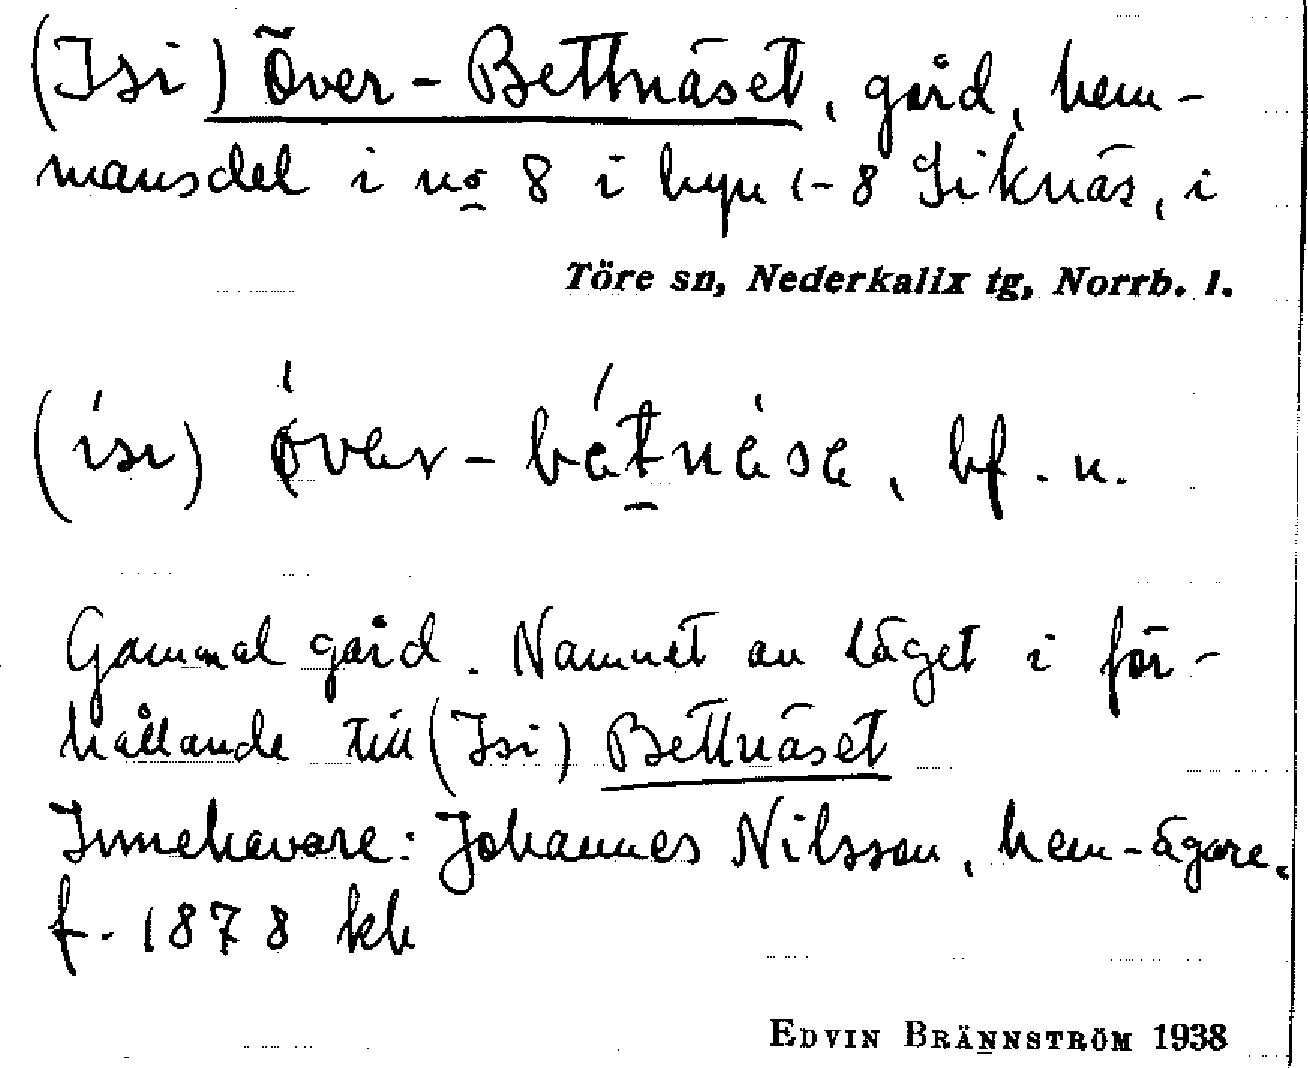 (Isi) Över-Bettnäset, gård, hem-
mansdel i no 8 i byn 1-8 Siknäs, i
Töre sn, Nederkalix tg, Norrb. l.
(ísı) över-bétnèse, bf. n.
Gammal gård. Namnet av läget i för-
hållande till (Isi) Bettnäset
Innehavare: Johannes Nilsson, hem-ägare,
f. 1878 kb
EDVIN BRÄNNSTRÖM 1938